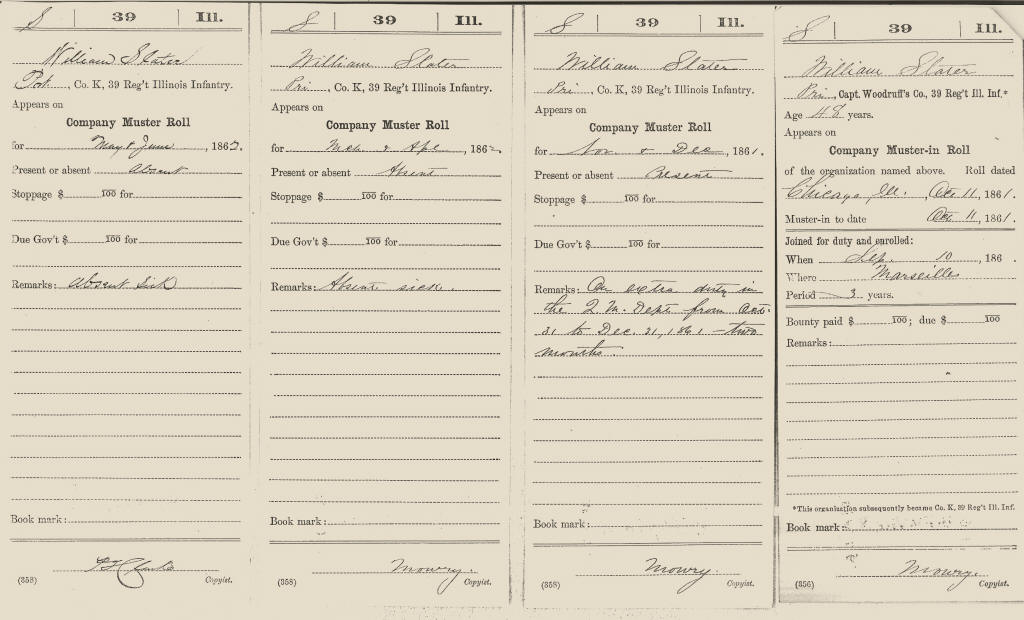 S | 39 | Ill.
William Slater
Pvt., Co. K, 39 Reg't Illinois Infantry.
Appears on
Company Muster Roll
for May & June, 1862.
Present or absent Absent
Stoppage $ 100 for
Due Gov't $ 100 for
Remarks: Absent Sick
Book mark:
(358) Copyist.
S | 39 | Ill.
William Slater
Pri, Co. K, 39 Reg't Illinois Infantry.
Appears on
Company Muster Roll
for Mch & Apl, 1862.
Present or absent Absent
Stoppage $ 100 for
Due Gov't $ 100 for
Remarks: Absent sick.
Book mark:
Mowry.
(358) Copyist.
S | 39 | Ill.
William Slater
Pri, Co. K, 39 Reg't Illinois Infantry.
Appears on
Company Muster Roll
for Nov. & Dec, 1861.
Present or absent Present
Stoppage $ 100 for
Due Gov't $ 100 for
Remarks: On extra duty in
the Q. M. Dept from Oct.
31 to Dec. 31, 1861 - two
months.
Book mark:
Mowry.
(358) Copyist.
S | 39 | Ill.
William Slater
Pri, Capt. Woodruff's Co., 39 Reg't Ill. Inf.*
Age 48 years.
Appears on
Company Muster-in Roll
of the organization named above. Roll dated
Chicago, Ill., Oct. 11, 1861.
Muster-in to date Oct. 11, 1861.
Joined for duty and enrolled:
When Sep. 10, 186 .
Where Marseilles
Period 3 years.
Bounty paid $ 100; due $ 100
Remarks:
*This organization subsequently became Co. K, 39 Reg't Ill. Inf.
Book mark:
Mowry.
(356) Copyist.